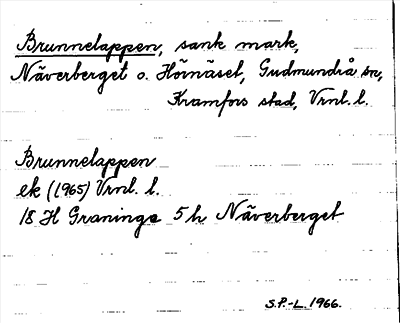 Brunnelappen, sank mark,
Näverberget o. Hörnäset, Gudmundrå sn,
Kramfors stad, Vrnl. l.
Brunnelappen
ek (1965) Vrnl. l.
18 H Graninge 5 h Näverberget
S.P.-L. 1966.